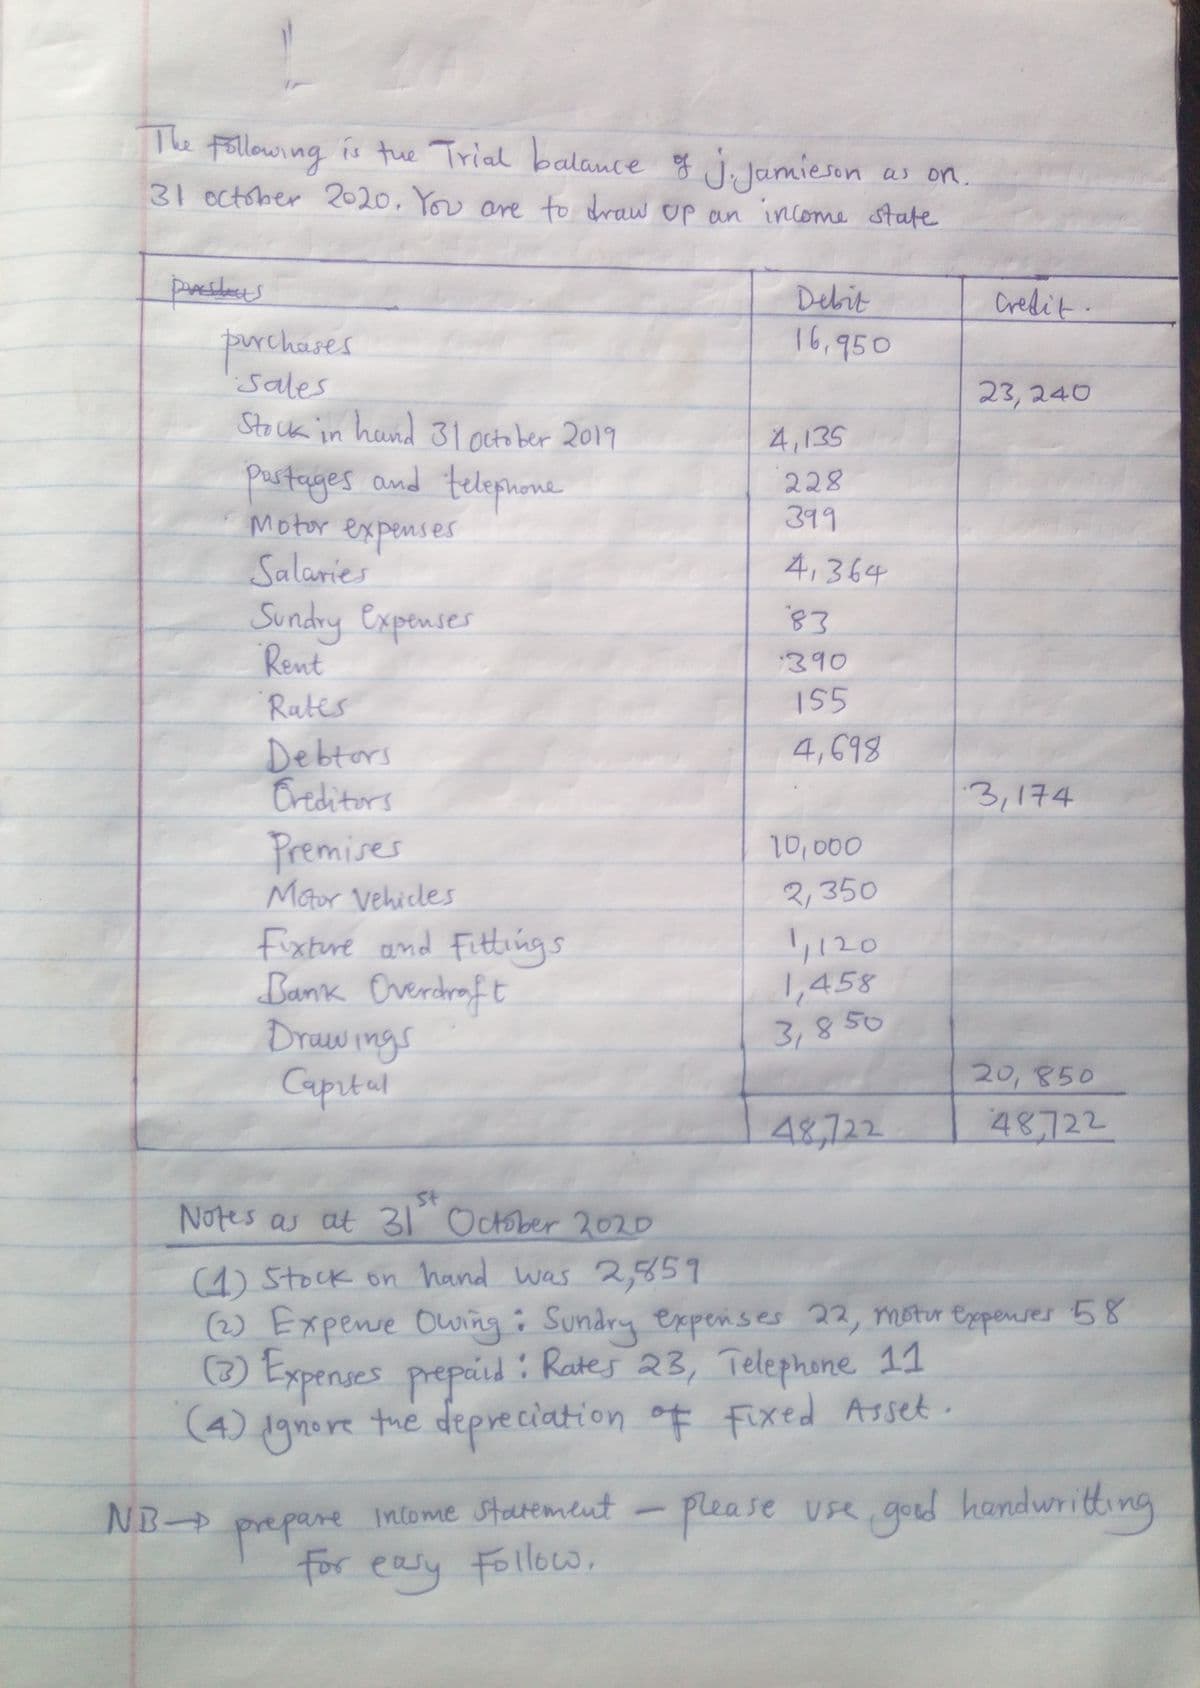 The Following is the Trial balance of J. Jamieson as on.
31 october 2020. You are to draw up an income state
Debit Credit.
purchases 16,950
sales 23,240
Stock in hand 31 october 2019 4,135
postages and telephone 228
Motor expenses 399
Salaries 4,364
Sundry Expenses 83
Rent 390
Rates 155
Debtors 4,698
Creditors 3,174
Premises 10,000
Motor Vehicles 2,350
Fixture and Fittings 1,120
Bank Overdraft 1,458
Drawings 3,850
Capital 20,850
48,722 48,722
Notes as at 31st October 2020
(1) Stock on hand was 2,859
(2) Expense Owing : Sundry expenses 22, motor Expenses 58
(3) Expenses prepaid : Rates 23, Telephone 11
(4) Ignore the depreciation of Fixed Asset.
NB→ prepare income statement - please use good handwritting
For easy Follow.